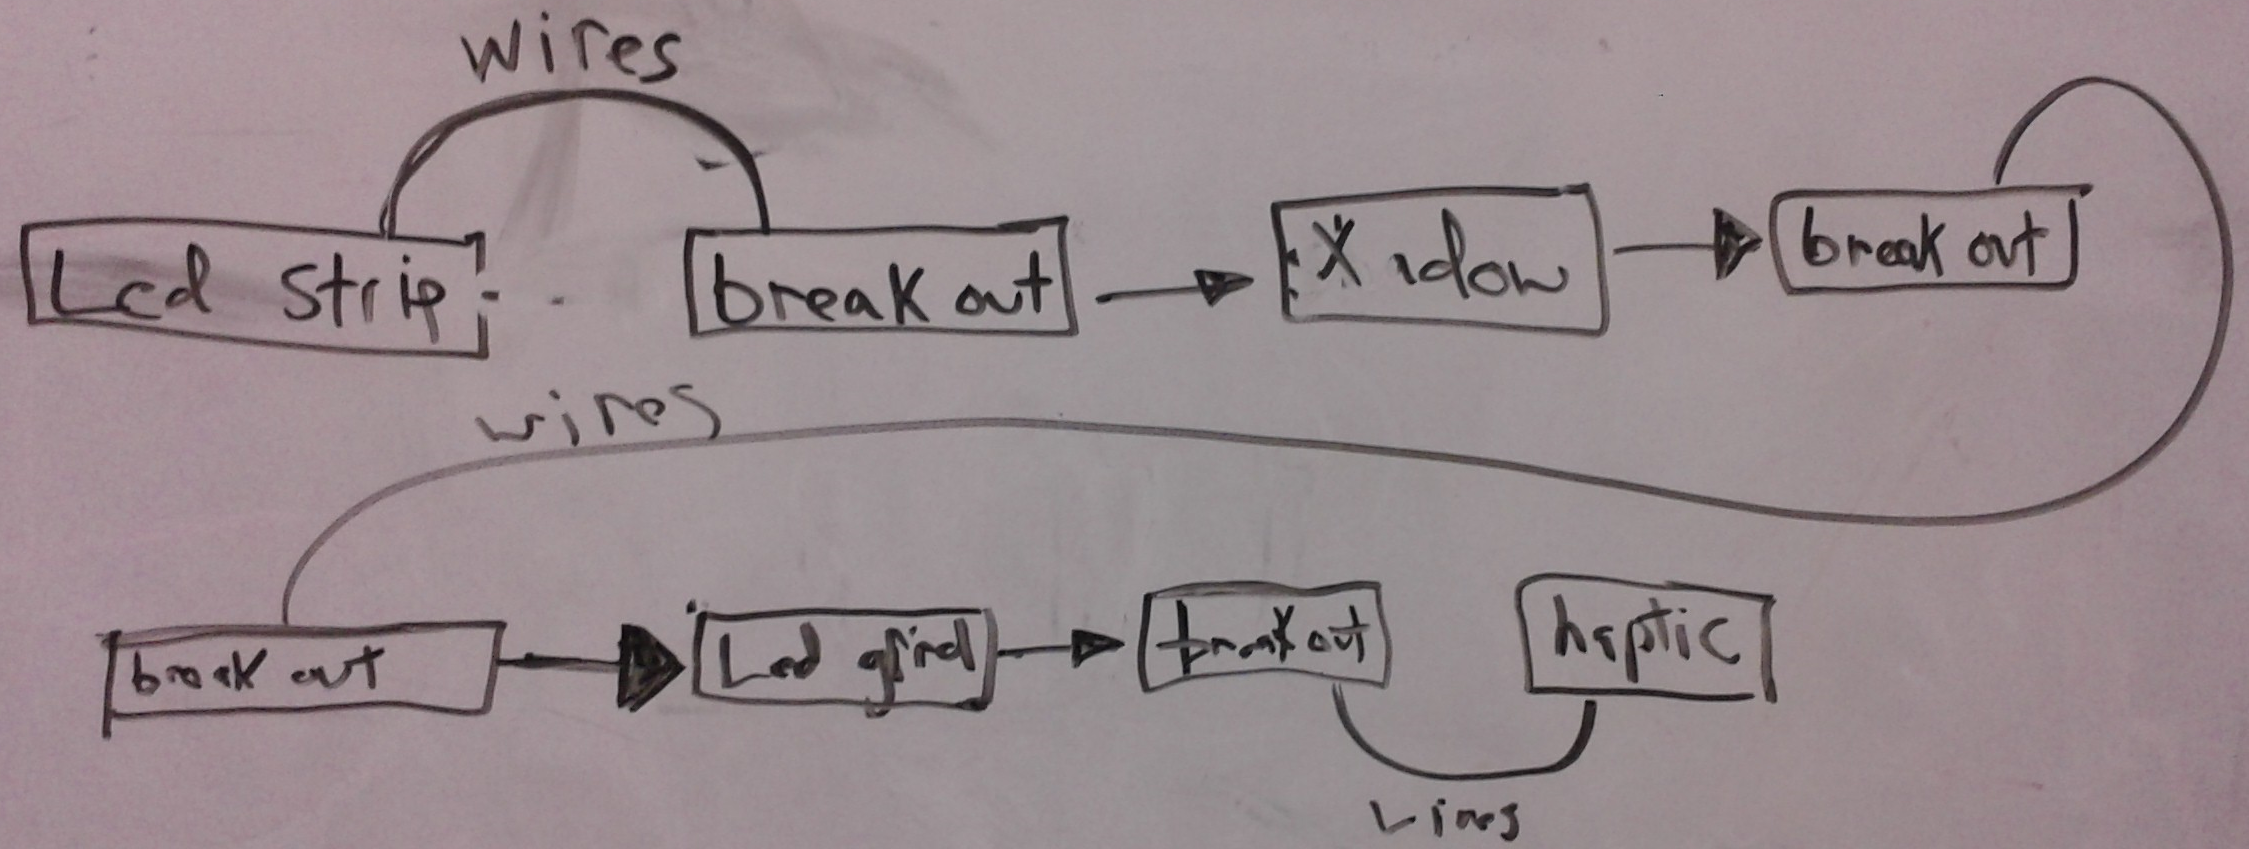 wires
Led strip
break out
X
break out
wires
break out
Led grid
break out
haptic
wires